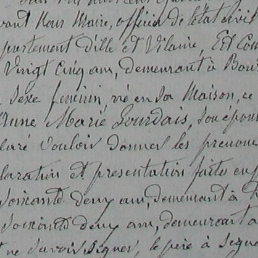 vant Nous Maire, officier de l'état civil
partement d'ille et Vilaine, Est Com
Vingt Cinq ans, demeurant à Bou
Sexe feminin, né en sa Maison, ce
Anne Marie Lourdais, son épous
laré vouloir donner les prenoms
laration et presentation faites en p
soixante deux ans, demeurant à
soixante deux ans, demeurant a
ne savoir signer, le père à signé